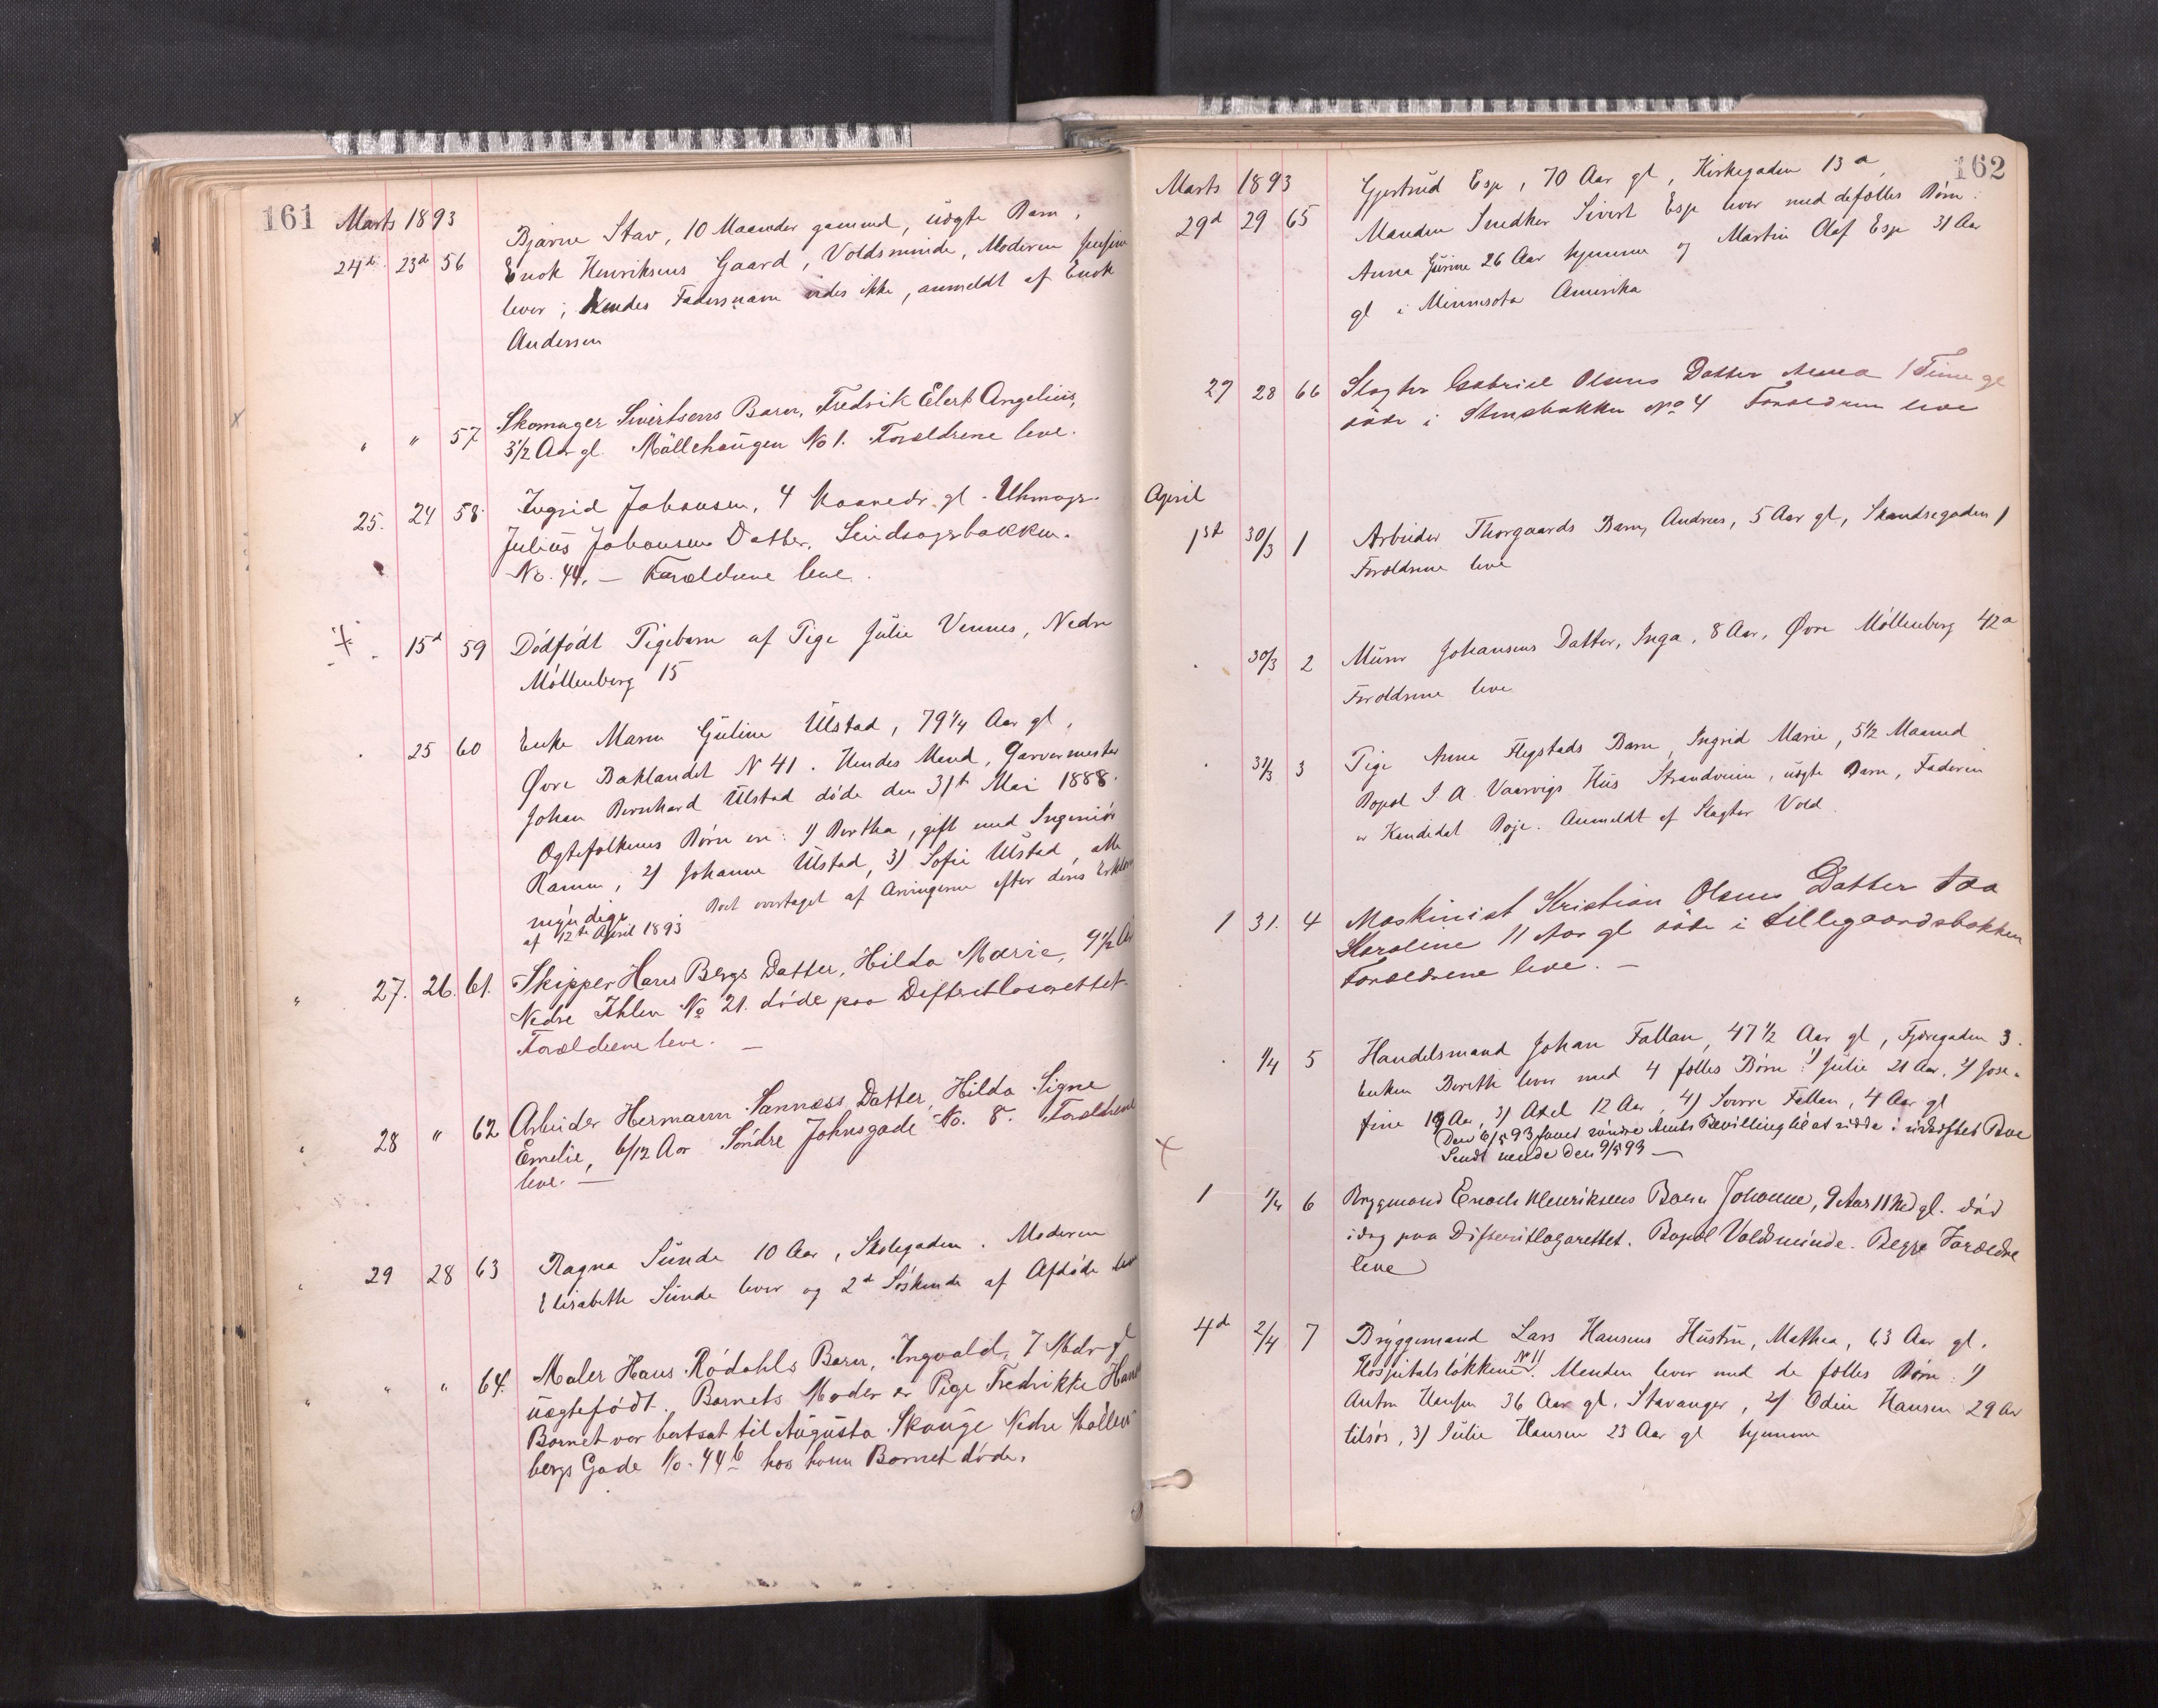 161 Marts 1893
24de 23d 56 Bjarne Stav, 10 Maaneder gammel, uægte Barn,
Enok Henriksens Gaard, Voldsminde, Moderen
lever; Hendes Fadersnavn vides ikke, anmeldt af Enok
Andersen
" " 57 Skomager Sivertsens Barn, Fredrik Elert Angelius,
3 1/2 Aar gl. Möllehaugen No 1. Forældrene leve.
25. 24 58 Ingrid Johansen, 4 Maaneder gl. Uhrmager
Julius Johansens Datter,
No. 44. — Forældrene leve.
15d 59 Dödfödt Pigebarn af Pige Julie Vennes, Nedre
Möllenberg 15
25 60 Enke Maren Guline Ulstad, 79 1/4 Aar gl,
Øvre Baklandet N 41. Hendes Mand, Garvermester
Johan Bernhard Ulstad döde den 31te Mai 1888.
Ægtefolkenes Börn ere: 1) Bertha, gift med Ingeniör
Ramm, 2) Johanne Ulstad, 3) Sofie Ulstad, alle
myndige Boet overtaget af Arvingerne efter deres
af 12te April 1893
" 27. 26. 61. Skipper Hans Bergs Datter, Hilda Marie, 9 1/2 Aar
Nedre Ihlen No 21. döde paa Difteritlasarettet.
Forældrene leve. —
" 28 " 62 Arbeider Hermann Sannæss Datter, Hilda Signe
Emelie, 6/12 Aar Söndre Johnsgade No. 8. Forældrene
leve. —
" 29 28 63 Ragna Sunde 10 Aar, Skolegaden. Moderen
Elisabeth Sunde lever og 2d Söskende af Afdöde
" " " 64. Maler Hans Rödahls Barn, Ingvald, 7 Mdr gl
uægtefödt. Barnets Moder er Pige Fredrikke
Barnet var bortsat til Augusta Skauge Nedre Möllen-
bergs Gade No. 44 b hos hvem Barnet döde.
162
Marts 1893 Gjertrud Esp, 70 Aar gl, Kirkegaden 13 a,
29d 29 65 Manden Snedker Sivert Esp lever med defælles Börn:
Anna Gurine 26 Aar hjemme og Martin Olaf Esp 31 Aar
gl i Minnesota Amerika
27 28 66 Slagter Gabriel Olsens Datter Anna 1 Time gl
döde i Stensbakken No 4 Forældrene leve
April
1st 30/3 1 Arbeider Thorgaards Barn, Andreas, 5 Aar gl, Skandsegaden 1
Forældrene leve
" 30/3 2 Murer Johansens Datter, Inga, 8 Aar, Øvre Möllenberg 42a
Forældrene leve
" 31/3 3 Pige Anna Flegstads Barn, Ingrid Marie, 5 1/2 Maaned
Bopæl I. A. Vaarvigs Hus Strandveien, uægte Barn, Faderen
er Kandidat Boje. Anmeldt af Slagter Vold.
1 31. 4 Maskinist Kristian Olsens Datter Ida
Karoline 11 Aar gl döde i Lillegaardsbakken
Forældrene leve. —
" 1/4 5 Handelsmand Johan Fallan, 47 1/2 Aar gl, Fjæregaden 3.
Enken Berethe lever med 4 fælles Börn: 1) Julie 21 Aar, 2) Jose-
fine 19 Aar, 3) Axel 12 Aar, 4) Sverre Fallan, 4 Aar gl
Den 6/5 93 faaet söndre Amts Bevilling til at sidde i uskiftet Boe
Sendt hende den 9/5 93 —
1 1/4 6 Bryggmand Enoch Henriksens Barn Johanne, 9 Aar 11 Md gl. död
idag paa Difteritlazarettet. Bopæl Voldsminde. Begge Forældre
leve
4de 2/4 7 Bryggemand Lars Hansens Hustru, Mathea, 63 Aar gl.
Hospitalslökkene No 11. Manden lever med de fælles Börn: 1)
Anton Hansen 36 Aar gl. Stavanger, 2) Odin Hansen 29 Aar
tilsös, 3) Julie Hansen 23 Aar gl hjemme